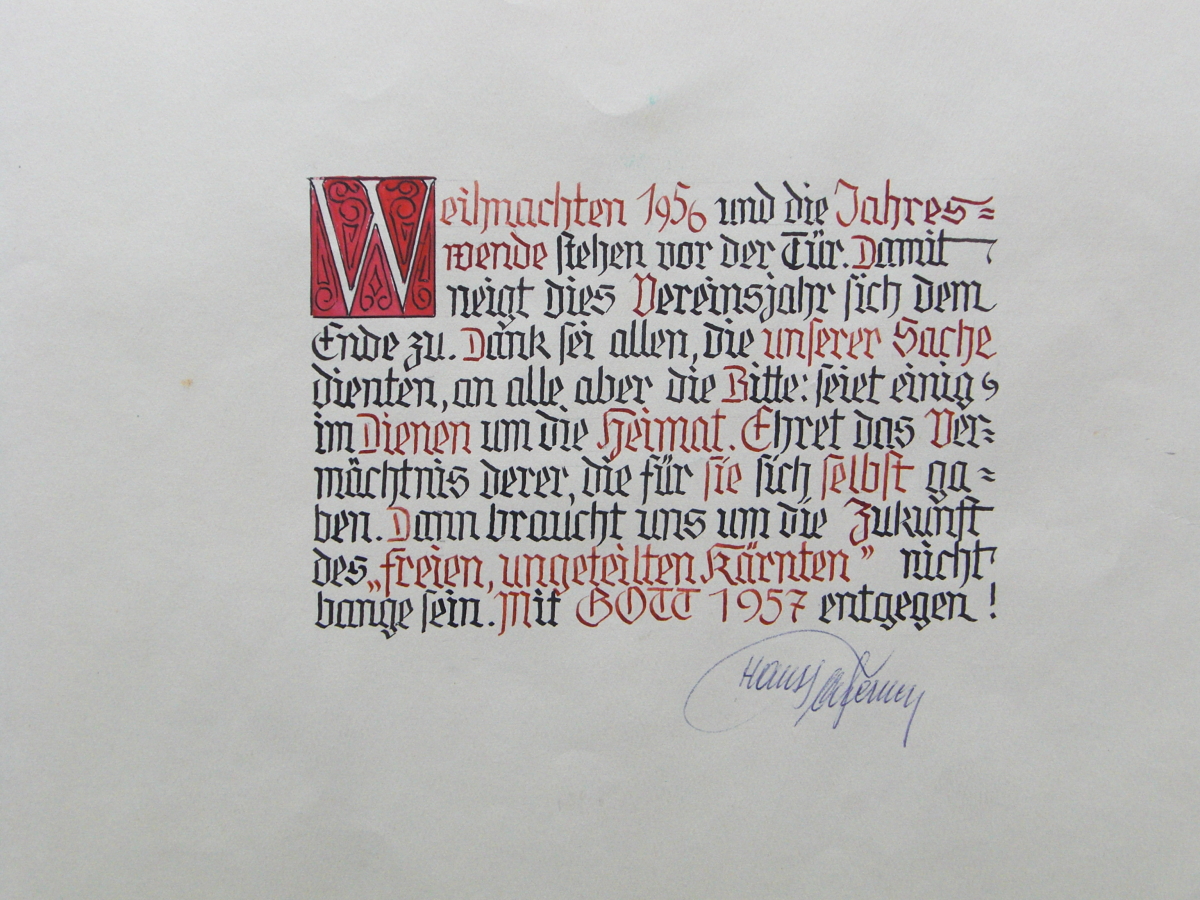 Weihnachten 1956 und die Jahres=
wende stehen vor der Tür. Damit
neigt dies Vereinsjahr sich dem
Ende zu. Dank sei allen, die unserer Sache
dienten, an alle aber die Bitte: seiet einig
im Dienen um die Heimat. Ehret das Ver=
mächtnis derer, die für sie sich selbst ga=
ben. Dann braucht uns um die Zukunft
des „freien, ungeteilten Kärnten” nicht
bange sein. Mit GOTT 1957 entgegen!
Hans